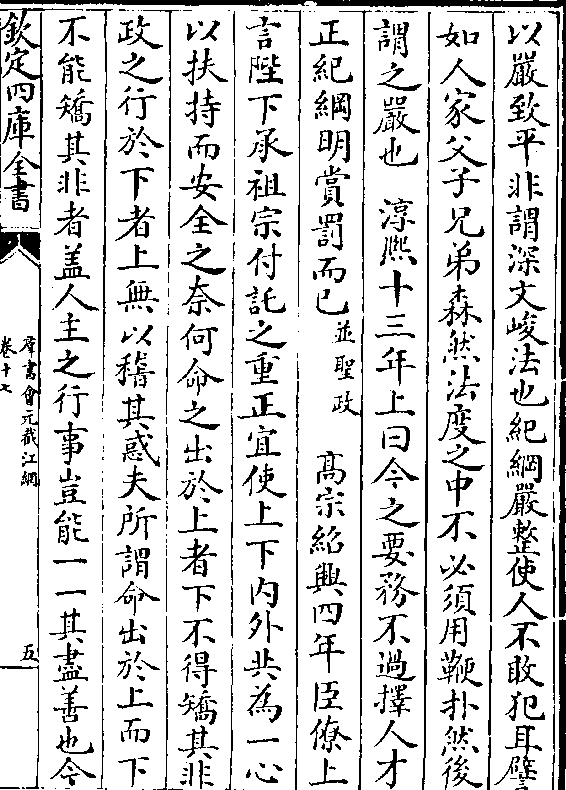 以嚴致平非謂深文峻法也紀綱嚴整使人不敢犯耳譬
如人家父子兄弟森然法度之中不必須用鞭扑然後
謂之嚴也　淳熈十三年上曰今之要務不過擇人才
正紀綱明賞罰而已並聖政　高宗紹興四年臣僚上
言陛下承祖宗付託之重正宜使上下内外共為一心
以扶持而安全之奈何命之出於上者下不得矯其非
政之行於下者上無以稽其惑夫所謂命出於上而下
不能矯其非者盖人主之行事豈能一一其盡善也今
欽定四庫全書
羣書會元截江網
卷十七
五